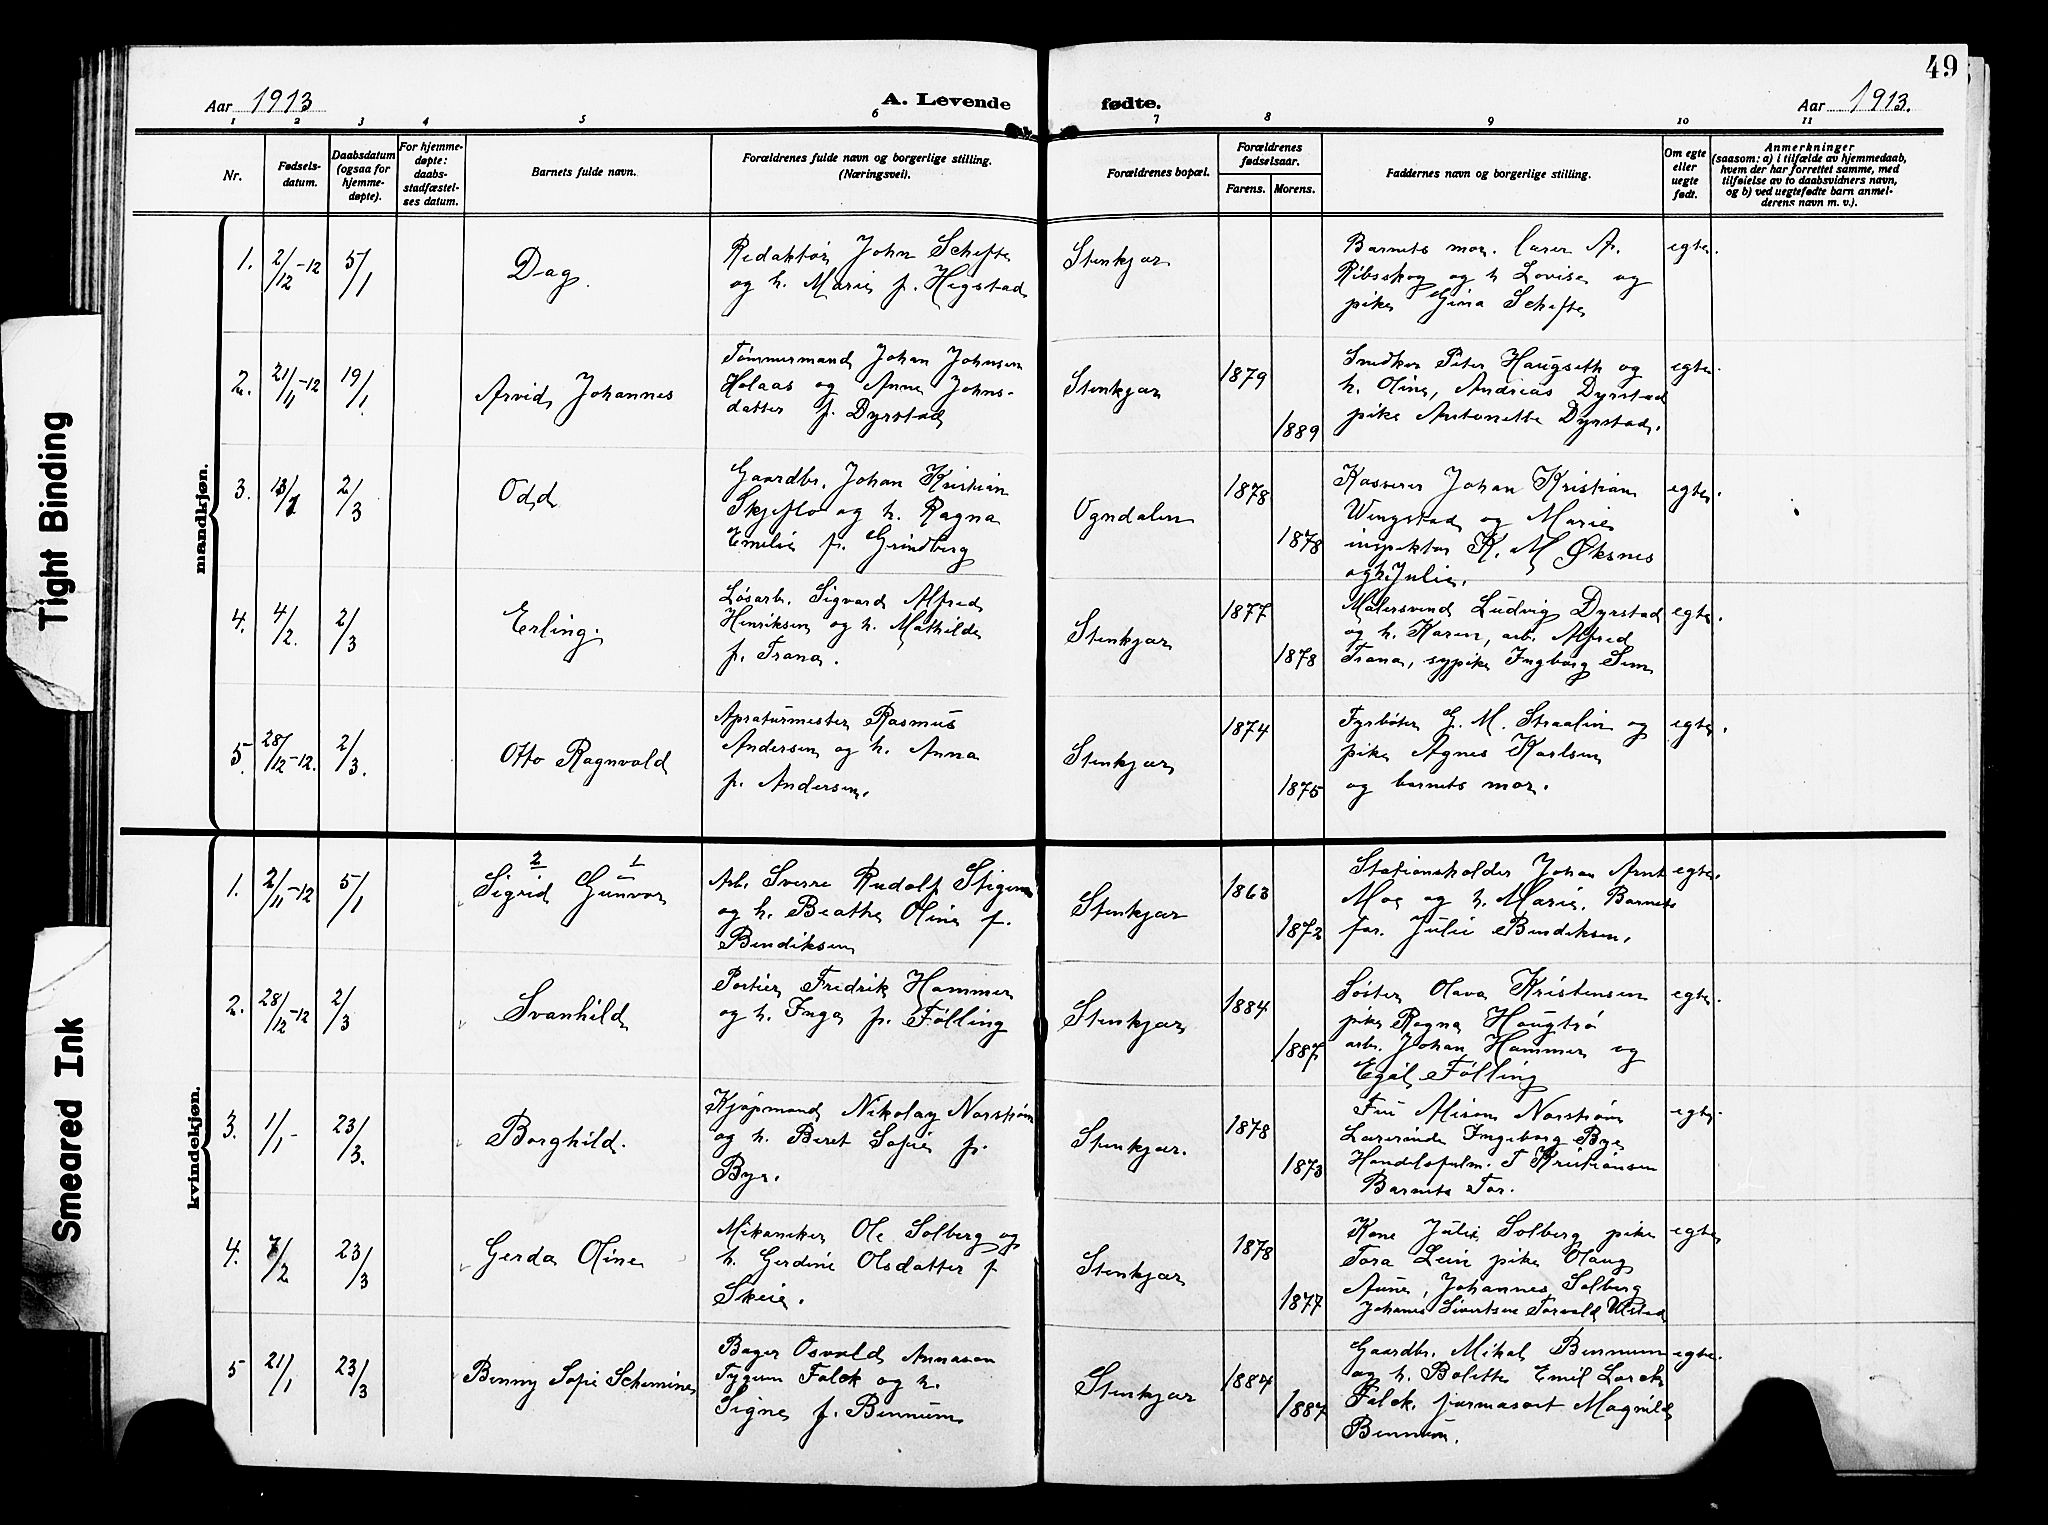 49
Aar 1913
A. Levende fødte.
Aar 1913.
1 2 3 4 5 6 7 8 9 10 11
Nr.
Fødsels-
datum.
Daabsdatum
(ogsaa for
hjemme-
døpte).
For hjemme-
døpte:
daabs-
stadfæstel-
ses datum.
Barnets fulde navn.
Forældrenes fulde navn og borgerlige stilling.
(Næringsvei).
Forældrenes bopæl.
Forældrenes
fødselsaar.
Farens. Morens.
Faddernes navn og borgerlige stilling.
Om egte
eller
uegte
født.
Anmerkninger
(saasom: a) i tilfælde av hjemmedaab,
hvem der har forrettet samme, med
tilføielse av to daabsvidners navn,
og b) ved uegtefødte barn anmel-
derens navn m. v.).
mandkjøn.
1. 2/12-12 5/1
Dag.
Redaktør John Schefte
og h. Marie f. Hegstad
Stenkjær
Barnets mor. lærer A.
Ribsskog og h Lovise og
pike Gina Schefte
egte.
2. 21/11-12 19/1
Arvid Johannes
Tømmermand Johan Johnsen
Holaas og Anna Johns-
datter f. Dyrstad
Stenkjær
1879
1889
Snedker Peter Haugseth og
h. Oline, Andreas Dyrstad
pike Antonette Dyrstad.
egte.
3. 13/1 2/3
Odd
Gaardbr. Johan Kristian
Skjeflo og h. Ragna
Emelie f. Grindberg
Ogndalen
1878
1878
Kasserer Johan Kristian
Wengstad og Marie
inspektør K. M Øksnes
og h. Julie.
egte.
4. 4/2. 2/3
Erling.
Løsarb. Sigvard Alfred
Henriksen og h. Mathilde
f. Trana.
Stenkjær
1877
1878
Malersvend Ludvig Dyrstad
og h. Karen, arb. Alfred
Trana, sypike Ingborg Sem
egte.
5. 28/12-12. 2/3.
Otto Ragnvald
Apraturmester Rasmus
Andersen og h. Anna
f. Andersen.
Stenkjær
1874
1875
Fyrbøter G. M. Straalin og
pike Agnes Karlsen
og barnets mor.
egte.
kvindekjøn.
1. 2/11-12 5/1
2 1
Sigrid Gunvor
Arb. Sverre Rudolf Stigum
og h. Beathe Oline f.
Bendiksen
Stenkjær
1863
1872
Stationsholder Johan Arnt
Moe og h. Marie. Barnets
far. Julie Bendiksen.
egte.
2. 28/12-12 2/3
Svanhild
Portier Fredrik Hammer
og h. Inga f. Følling
Stenkjær
1884
1887
Søster Olava Kristensen
pike Ragna Haugtrø
arb. Johan Hammer og
Egil Følling
egte.
3. 1/1- 23/3.
Borghild.
Kjøpmand Nikolay Norstrøm
og h. Beret Sofie f.
Bye.
Stenkjær.
1878
1873
Fru Alison Norstrøm
Lærerinde Ingeborg Bye
Handelsfulm. T Kristiansen
Barnets Far.
egte.
4. 7/2 23/3
Gerda Oline
Mekaniker Ole Solberg og
h. Gerdine Olsdatter f
Skeie.
Stenkjær
1878
1877
Kone Julie Solberg pike
Tora Lein pike Olaug
Aune, Johannes Solberg
Johanes Sivertsen Torvald Ulstad
egte
5 21/1 23/3
Benny Sofie Schemine
Bager Osvald Annason
Tygum Falck og h.
Signe f. Bennum
Stenkjær
1884
1887
Gaardbr. Mikal Bennum
og h. Bolette Emil Lorck
Falck. farmaseut Magnild
Bennum.
egte.
Tight Binding
Smeared Ink